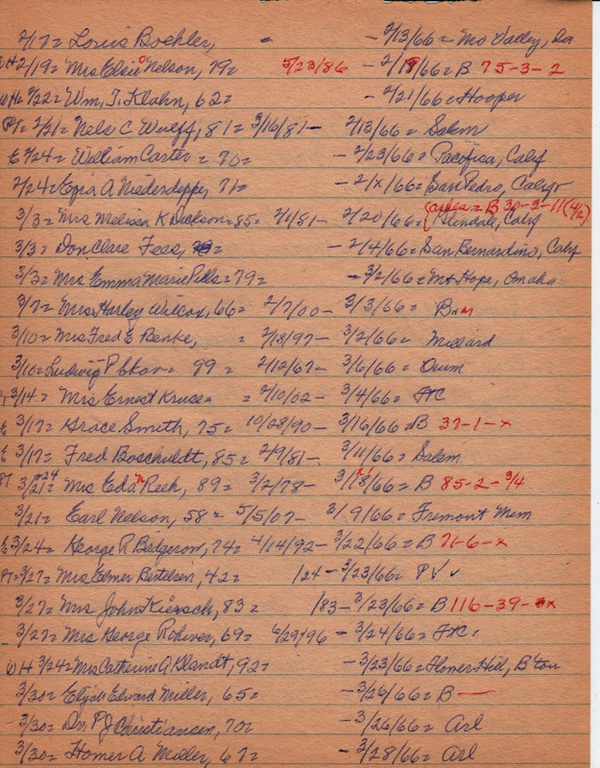 2/17= Louis Boehler, = - 2/13/66= Mo Valley, Ia
WH 2/19= Mrs Elsie Nelson, 79= 5/23/86 - 2/17/66= B 75-3-2
WH 2/22= Wm. T. Klahn, 62= - 2/21/66= Hooper
PT= 2/21= Nels C Wulff, 81= 3/16/81- 2/18/66= Salem
E 2/24= William Carter = 70= - 2/23/66= Pacifica, Calif
2/24= A Niedersdeppe, 71= - 2/x/66= San Pedro, Calif
3/3= Mrs Melissa K Dickson= 85= 2/1/81- 2/20/66= {ashes= B 30-3-11(4/2)
Glendale, Calif
3/3= Don Clare Fees, = - 2/4/66= San Bernardino, Calif
3/3= Mrs Emma Marie Pells= 79= - 3/2/66= Mt Hope, Omaha
3/7= Mrs. Harley Wilcox, 66= 2/7/00- 3/3/66= B
3/10= Mrs Fred E Benke, = 2/18/97- 3/2/66= Millard
3/10= Ludwig = 99 = 2/12/67- 3/6/66= Orum
3/14= Mrs Ernest Kruse= = 2/10/02- 3/4/66= FtC
E 3/17= Grace Smith, 75= 10/28/90- 3/16/66= B 37-1-x
E 3/17= Fred Boschuldt, 85= 2/9/81- 3/11/66= Salem
PT 3/21= Mrs Eda Reeh, 89= 3/2/78- 3/18/66= B 85-2-3/4
3/21= Earl Nelson, 58= 5/5/07- 3/9/66= Fremont Mem
E 3/24= George R Badgerow, 74= 4/14/92- 3/22/66= B 71-6-x
PT= 3/27= Mrs Elmer Bertelsen, 42= /24- 3/23/66= PV ✓
3/27= Mrs John Kiersch, 83= /83- 3/23/66= B 116-39-x
3/27= Mrs George Rohwer, 69= 6/29/96 - 3/24/66= FtC.
WH 3/24= Mrs Catherine A Klandt, 92= - 3/23/66= Flower Hill, B'ton
3/30= Elijah Edward Miller, 65= - 3/26/66= B —
3/30= Dr. P J Christiansen, 70= - 3/26/66= Arl
3/30= Homer A Miller, 67= - 3/28/66= Arl